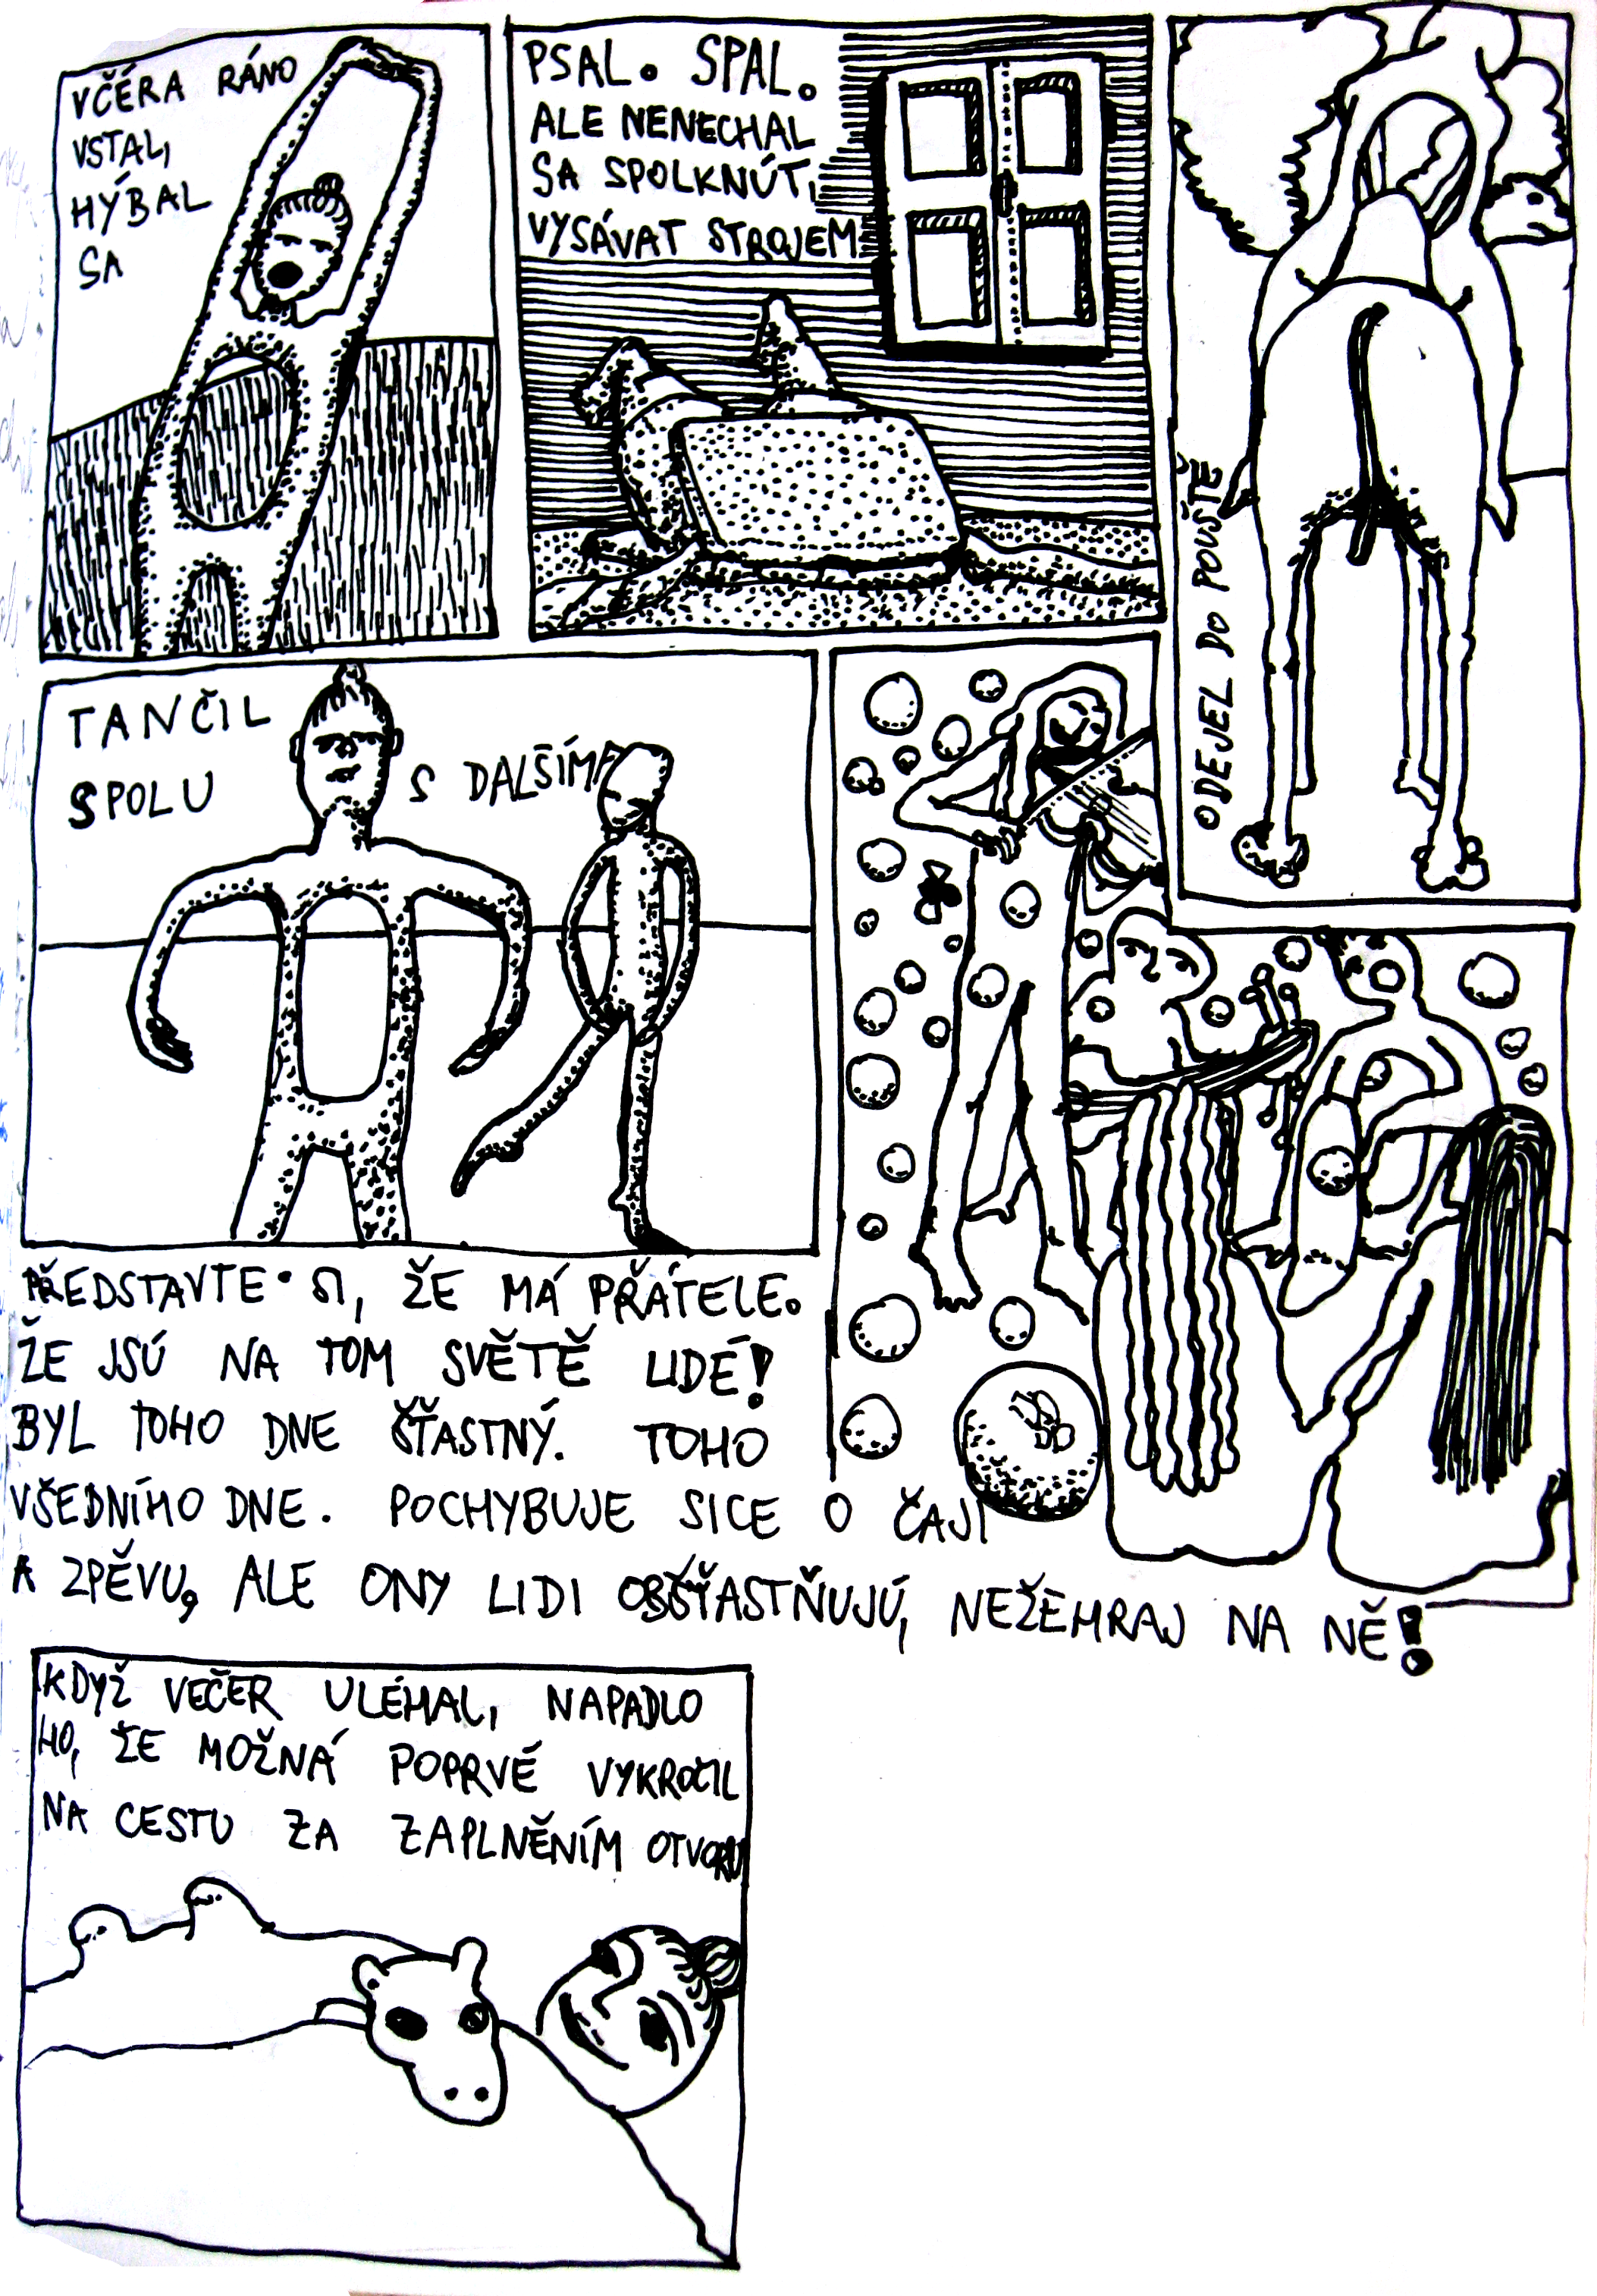 VČÉRA RÁNO
VSTAL,
HÝBAL
SA
PSAL. SPAL.
ALE NENECHAL
SA SPOLKNÚT,
VYSÁVAT STROJEM
ODEJEL DO POUŠTĚ
TANČIL
SPOLU S DALŠÍMA
PŘEDSTAVTE SI, ŽE MÁ PŘÁTELE.
ŽE JSÚ NA TOM SVĚTĚ LIDÉ!
BYL TOHO DNE ŠŤASTNÝ. TOHO
VŠEDNÍHO DNE. POCHYBUJE SICE O ČAJI
A ZPĚVU, ALE ONY LIDI OBŠŤASTŇUJÚ, NEŽEHRAJ NA NĚ!
KDYŽ VEČER ULÉHAL, NAPADLO
HO, ŽE MOŽNÁ POPRVÉ VYKROČIL
NA CESTU ZA ZAPLNĚNÍM OTVORU